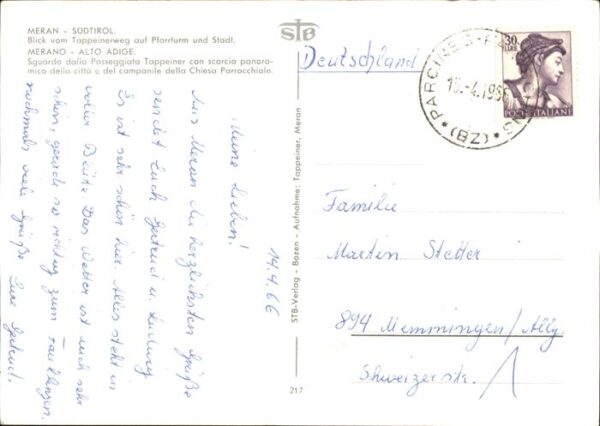 MERAN - SÜDTIROL.
Blick vom Tappeinerweg auf Pfarrturm und Stadt.
MERANO - ALTO ADIGE.
Sguardo dalla Passeggiata Tappeiner con scorcio panoramico della città e del campanile della Chiesa Parrocchiale.
14.4.66
Meine Lieben!
Aus Meran die herzlichsten Grüße
sendet Euch Gertrud u. Ludwig
Es ist sehr schön hier. Alles steht in
voller Blüte. Das Wetter ist auch sehr
schön, gerade so richtig zum Faullenzen.
nochmals viele Grüße Eure Gertrud.
STB-Verlag - Bozen - Aufnahme: Tappeiner, Meran
217
STB
Deutschland
30
LIRE
POSTE ITALIANE
PARCINES
15.-4.19
(BZ)
Familie
Martin Stetter
894 Memmingen/Allg.
Schweizerstr. 1